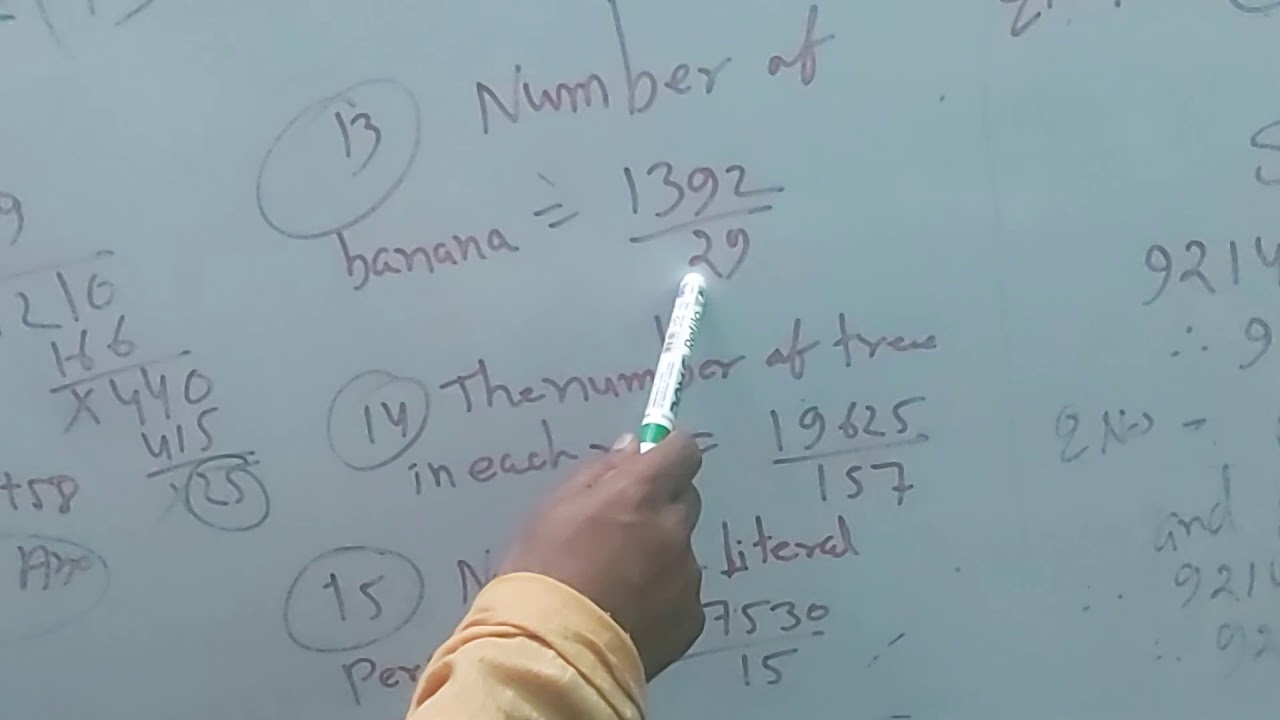 13 Number of
banana = 1392
29
14 The number of trees
in each = 19625
157
15 literal
7530
15
9
210
166
x440
415
25
+58
Ans
9214
∴ 9
and
9214
∴ 92